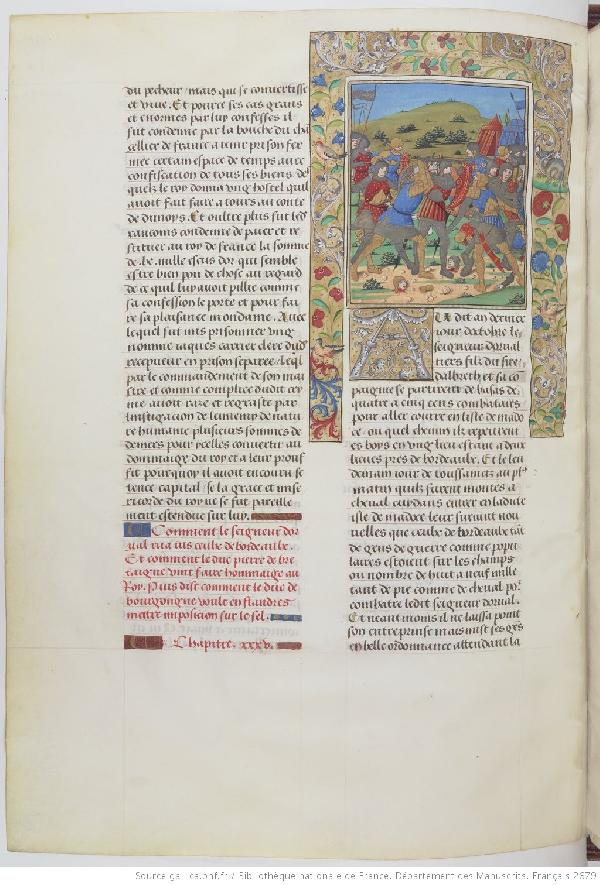 du pecheur / mais qui se convertisse
et vive. Et pource ses cas graus
et enormes par luy confesses il
fut condemne par la bouche du cha
cellier de france a tenir prison fer
mee certain espace de temps avec
confiscation de tous ses biens de
quelz le roy donna ung hostel quil
avoit fait faire a tours au conte
de dunoys. Et oultre plus fut led
condemne de paier et re
stituer au roy de france la somme
mille escus dor qui semble
estre bien pou de chose au regard
de ce quil luy avoit pillie comme
sa confession le porte et pour fai
re sa plaisance mondaine. Avec
lequel fut mis prisonnier ung
nomme iaques carrier clerc dud
recepveur en prison separee / leql
par le commandement de son mai
stre et comme complice dudit cri
me avoit raze et regrate par
linstigacion de lennemy de natu
re humaine plusieurs sommes de
deniers pour ycelles convertir au
dommaige du roy et a leur prouf
fit pourquoy il avoit encouru se
tence capital / se la grace et mise
ricorde du roy ne se fut pareille
ment estendue sur luy.
Comment le seigneur dor
val rua ius ceulx de bordeaulx.
Et comment le duc pierre de bre
taigne vint faire hommaige au
Roy. Puis dist comment le duc de
bourgongne voult en flandres
mettre imposicion sur le sel.
Chapitre. xxxv.
Audit an dernier
iour doctobre le
seigneur dorval
tiers filz du sire
dalbreth et sa co
paignie se partirent de basas de
quatre a cinq cens combatans
pour aller courre en lisle de mado
ce / ou quel chemin ilz repeurent
es boys en ung lieu estant a deux
lieues pres de bordeaulx. Et le len
demain iour de toussainctz au pl9
matin quilz furent montes a
cheval cuydans entrer en ladicte
isle de madoce leur survint nou
velles que ceulx de bordeaulx tat
de gens de guerre comme popu
laires estoient sur les champs
ou nombre de huit a neuf mille
tant de pie comme de cheval por
combatre ledit seigneur dorval.
Et neant moins il ne laissa point
son entreprinse mais mist ses ges
en belle ordonnance attendant la
Source gallica.bnf.fr / Bibliothèque nationale de France. Département des Manuscrits. Français 2679